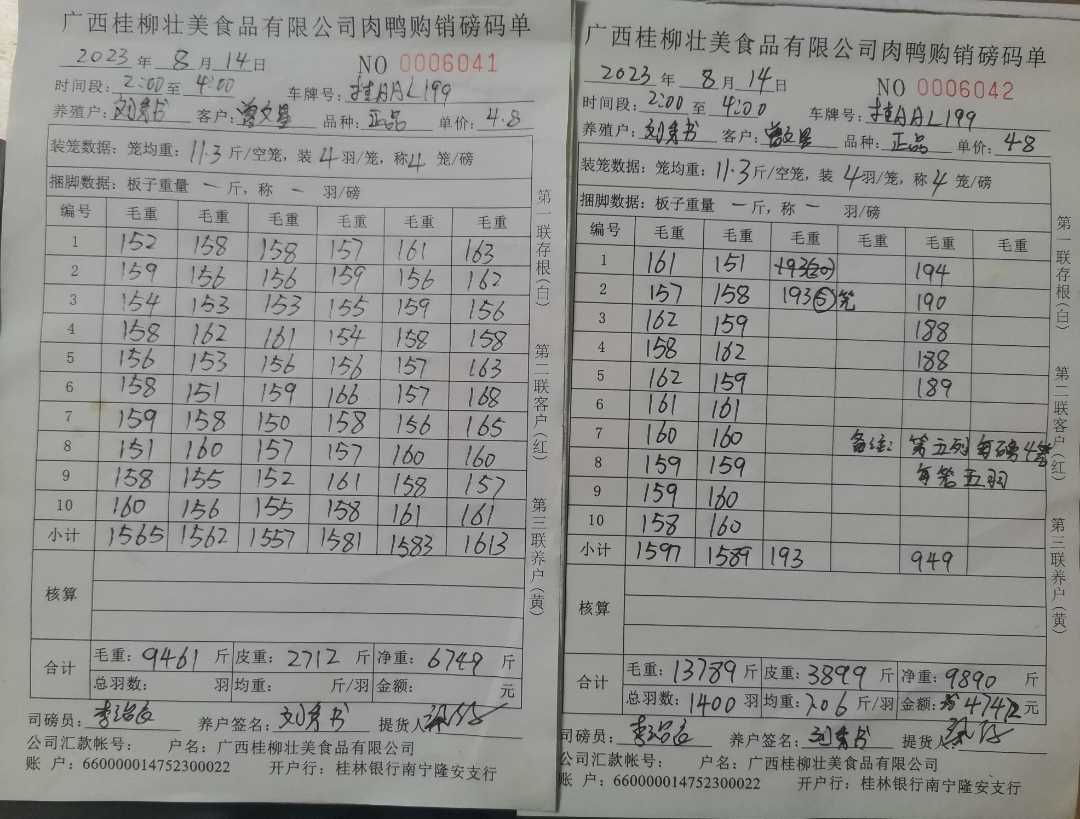 广西桂柳壮美食品有限公司肉鸭购销磅码单
2023 年 8 月 14 日 NO 0006041
时间段: 2:00 至 4:00 车牌号: 桂AAL199
养殖户: 刘秀书 客户: 曾文星 品种: 正品 单价: 4.8
装笼数据: 笼均重: 11.3 斤/空笼, 装 4 羽/笼, 称 4 笼/磅
捆脚数据: 板子重量 一 斤, 称 一 羽/磅
编号 毛重 毛重 毛重 毛重 毛重 毛重
1 152 158 158 157 161 163
2 159 156 156 159 156 162
3 154 153 153 155 159 156
4 158 162 161 154 158 158
5 156 153 156 156 157 163
6 158 151 159 166 157 168
7 159 158 150 158 156 165
8 151 160 157 157 160 160
9 158 155 152 161 158 157
10 160 156 155 158 161 161
小计 1565 1562 1557 1581 1583 1613
核算
合计 毛重: 9461 斤 皮重: 2712 斤 净重: 6749 斤
总羽数: 羽 均重: 斤/羽 金额: 元
司磅员: 养户签名: 刘秀书 提货人
公司汇款帐号: 户名: 广西桂柳壮美食品有限公司
账 户: 660000014752300022 开户行: 桂林银行南宁隆安支行
第一联存根(白) 第二联客户(红) 第三联养户(黄)
广西桂柳壮美食品有限公司肉鸭购销磅码单
2023 年 8 月 14 日 NO 0006042
时间段: 2:00 至 4:00 车牌号: 桂AAL199
养殖户: 刘秀书 客户: 曾文星 品种: 正品 单价: 4.8
装笼数据: 笼均重: 11.3 斤/空笼, 装 4 羽/笼, 称 4 笼/磅
捆脚数据: 板子重量 一 斤, 称 一 羽/磅
编号 毛重 毛重 毛重 毛重 毛重 毛重
1 161 151 193(20) 194
2 157 158 193 5 笼 190
3 162 159 188
4 158 162 188
5 162 159 189
6 161 161
7 160 160 备注: 第五列每磅4笼
8 159 159 每笼五羽
9 159 160
10 158 160
小计 1597 1589 193 949
核算
合计 毛重: 13789 斤 皮重: 3899 斤 净重: 9890 斤
总羽数: 1400 羽 均重: 7.06 斤/羽 金额: 47472 元
司磅员: 养户签名: 刘秀书 提货人
公司汇款帐号: 户名: 广西桂柳壮美食品有限公司
账 户: 660000014752300022 开户行: 桂林银行南宁隆安支行
第一联存根(白) 第二联客户(红) 第三联养户(黄)